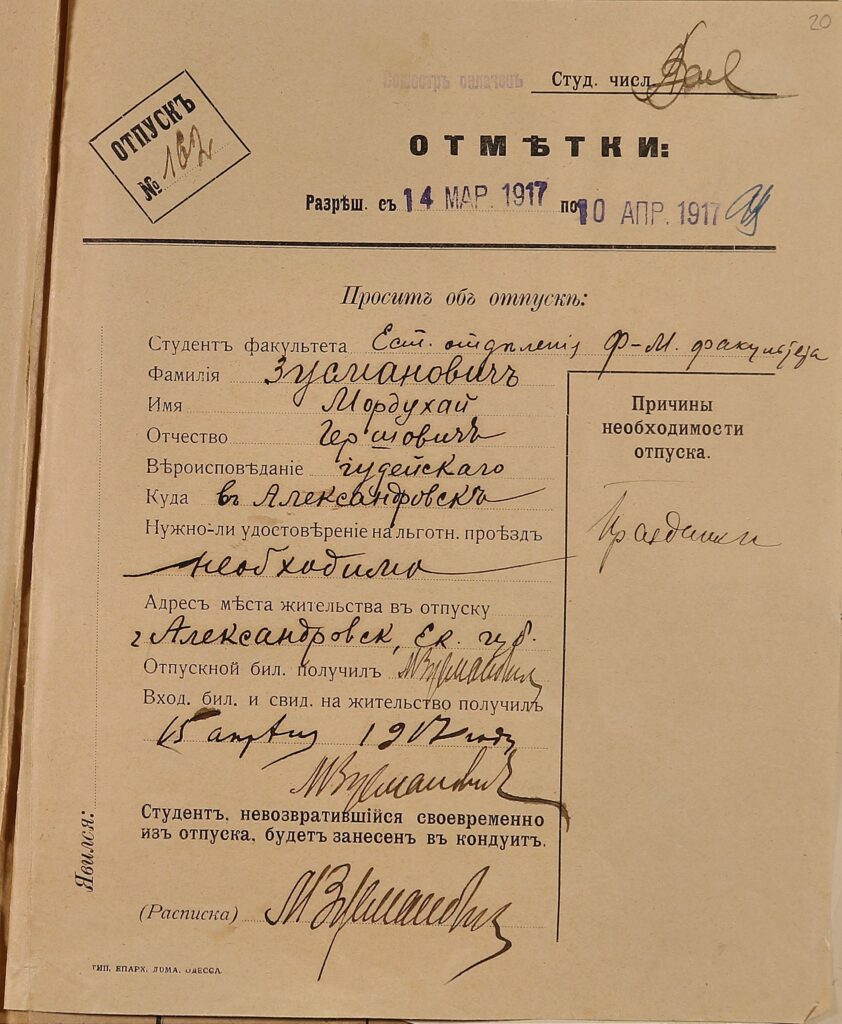 20
Семестръ оплаченъ Студ. числ.
ОТПУСКЪ
№ 162
ОТМѢТКИ:
Разрѣш. съ 14 МАР. 1917 по 10 АПР. 1917
Проситъ объ отпускѣ:
Студентъ факультета Ест. отдѣленія Ф-М. факультета
Фамилія Зусмановичъ
Имя Мордухай
Отчество Гершовичъ
Вѣроисповѣданіе іудейскаго
Куда въ Александровскъ
Нужно-ли удостовѣреніе на льготн. проѣздъ
необходимо
Адресъ мѣста жительства въ отпуску
г Александровск, Ек. губ.
Отпускной бил. получилъ МЗусманович
Вход. бил. и свид. на жительство получилъ
15 апрѣля 1917 году
МЗусманович
Студентъ, невозвратившійся своевременно
изъ отпуска, будетъ занесенъ въ кондуитъ.
(Расписка) МЗусманович
Причины
необходимости
отпуска.
Праздники
Явился:
ТИП. ЕПАРХ. ДОМА. ОДЕССА.